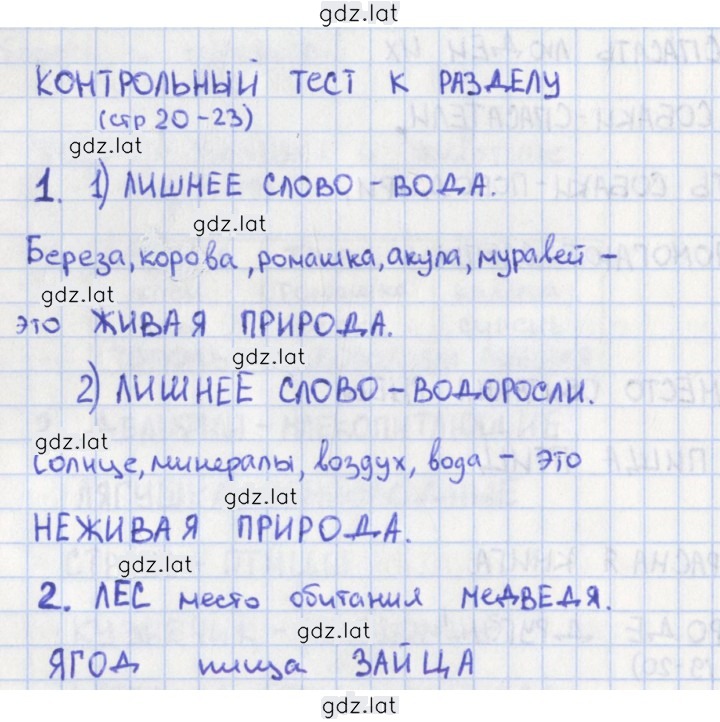 gdz.lat
КОНТРОЛЬНЫЙ ТЕСТ К РАЗДЕЛУ
(стр 20-23)
gdz.lat
1. 1) ЛИШНЕЕ СЛОВО - ВОДА.
gdz.lat
Береза, корова, ромашка, акула, муравей -
gdz.lat
это ЖИВАЯ ПРИРОДА.
gdz.lat
2) ЛИШНЕЕ СЛОВО - ВОДОРОСЛИ.
gdz.lat
солнце, минералы, воздух, вода - это
gdz.lat
НЕЖИВАЯ ПРИРОДА.
gdz.lat
2. ЛЕС место обитания МЕДВЕДЯ.
gdz.lat
ЯГОД пища ЗАЙЦА
gdz.lat